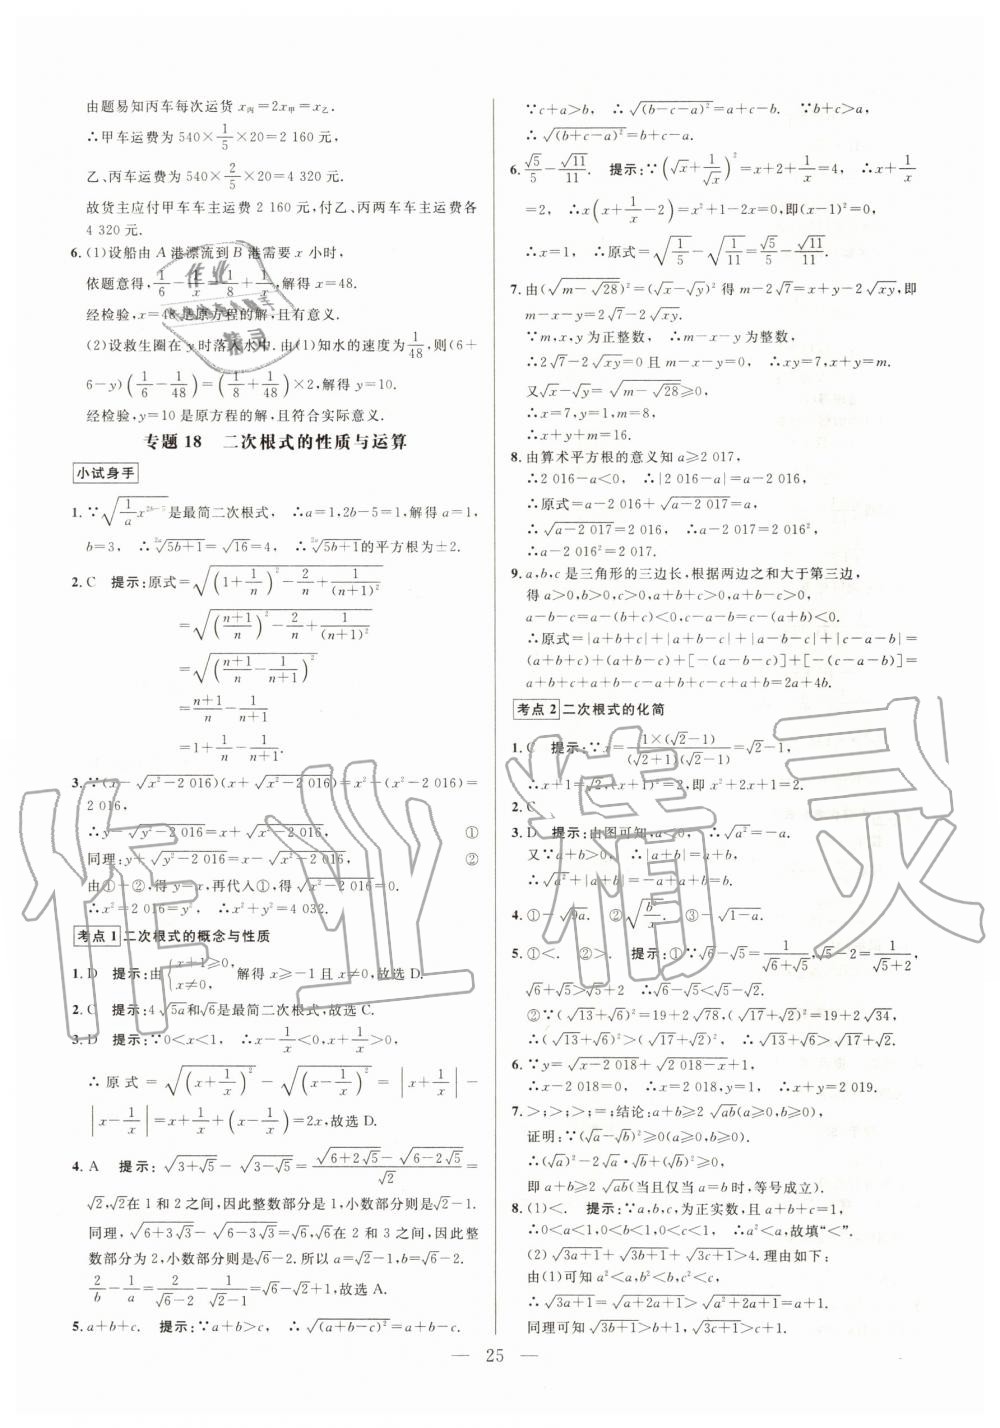 由题易知丙车每次运货 x丙=2x甲=x乙.
∴甲车运费为 540×1/5×20=2 160 元,
乙、丙车运费为 540×2/5×20=4 320 元.
故货主应付甲车车主运费 2 160 元,付乙、丙两车车主运费各
4 320 元.
6. (1)设船由 A 港漂流到 B 港需要 x 小时,
依题意得, 1/6-1/x=1/8+1/x,解得 x=48.
经检验,x=48是原方程的解,且有意义.
(2)设救生圈在 y 时落入水中.由(1)知水的速度为1/48,则(6+
6-y)(1/6-1/48)=(1/8+1/48),解得 y=10.
经检验,y=10 是原方程的解,且符合实际意义.
专题 18 二次根式的性质与运算
小试身手
1. ∵√(1/a x^(2b-5))是最简二次根式, ∴a=1,2b-5=1,解得 a=1,
b=3, ∴^(2a)√(5b+1)=√16=4, ∴^(2a)√(5b+1)的平方根为±2.
2. C 提示:原式=√((1+1/n)²-2/n+1/(n+1)²)
=√(((n+1)/n)²-2/n+1/(n+1)²)
=√((n+1)/n-1/(n+1))²
=(n+1)/n-1/(n+1)
=1+1/n-1/(n+1).
3. ∵(x-√(x²-2 016))(x+√(x²-2 016))=x²-(x²-2 016)=
2 016,
∴y-√(y²-2 016)=x+√(x²-2 016), ①
同理:y+√(y²-2 016)=x-√(x²-2 016), ②
由①+②,得 y=x,再代入①,得√(x²-2 016)=0.
∴x²=2 016=y², ∴x²+y²=4 032.
考点 1 二次根式的概念与性质
1. D 提示:由{x+1≥0, x≠0, 解得 x≥-1 且 x≠0,故选 D.
2. C 提示:4√(5a)和√6是最简二次根式,故选 C.
3. D 提示:∵0<x<1, ∴x+1/x>0,x-1/x<0,
∴原式=√((x+1/x)²)-√((x-1/x)²)=|x+1/x|-
|x-1/x|=x+1/x+(x-1/x)=2x,故选 D.
4. A 提示:√(3+√5)-√(3-√5)=(√(6+2√5)-√(6-2√5))/√2=
√2,√2在 1 和 2 之间,因此整数部分是 1,小数部分则是√2-1.
同理,√(6+3√3)-√(6-3√3)=√6,√6在 2 和 3 之间,因此整
数部分为 2,小数部分则是√6-2.所以 a=√2-1,b=√6-2.
2/b-1/a=2/(√6-2)-1/(√2-1)=√6-√2+1,故选 A.
5. a+b+c. 提示:∵a+b>c, ∴√((a+b-c)²)=a+b-c.
∵c+a>b, ∴√((b-c-a)²)=a+c-b. ∵b+c>a,
∴√((b+c-a)²)=b+c-a.
6. √5/5-√11/11. 提示:∵(√x+1/√x)²=x+2+1/x=4, ∴x+1/x
=2, ∴x(x+1/x-2)=x²+1-2x=0,即(x-1)²=0.
∴x=1. ∴原式=√(1/5)-√(1/11)=√5/5-√11/11.
7. 由(√(m-√28))²=(√x-√y)²得 m-2√7=x+y-2√(xy),即
m-x-y=2√7-2√(xy).
∵m,x,y为正整数, ∴m-x-y 为整数,
∴2√7-2√(xy)=0 且 m-x-y=0, ∴xy=7,x+y=m.
又√x-√y=√(m-√28)≥0,
∴x=7,y=1,m=8,
∴x+y+m=16.
8. 由算术平方根的意义知 a≥2 017,
∴2 016-a<0, ∴|2 016-a|=a-2 016,
∴原式=a-2 016+√(a-2 017)=a,
∴√(a-2 017)=2 016, ∴a-2 017=2 016²,
∴a-2 016²=2 017.
9. a,b,c 是三角形的三边长,根据两边之和大于第三边,
得 a>0,b>0,c>0,a+b+c>0,a+b-c>0.
a-b-c=a-(b+c)<0,c-a-b=c-(a+b)<0.
∴原式=|a+b+c|+|a+b-c|+|a-b-c|+|c-a-b|=
(a+b+c)+(a+b-c)+[-(a-b-c)]+[-(c-a-b)]=
a+b+c+a+b-c-a+b+c-c+a+b=2a+4b.
考点 2 二次根式的化简
1. C 提示:∵x=1×(√2-1)/((√2+1)(√2-1))=√2-1,
∴x+1=√2,∴(x+1)²=2,即 x²+2x+1=2.
2. C
3. D 提示:由图可知,a<0, ∴√(a²)=-a.
又∵a+b>0, ∴|a+b|=a+b,
∴√(a²)+|a+b|=-a+a+b=b.
5. ①<. ②>. 提示:①∵√6-√5=1/(√6+√5),√5-2=1/(√5+2),
√6+√5>√5+2, ∴√6-√5<√5-2.
②∵(√13+√6)²=19+2√78,(√17+√2)²=19+2√34,
∴(√13+√6)²>(√17+√2)². ∴√13+√6>√17+√2.
6. ∵y=√(x-2 018)+√(2 018-x)+1,
∴x-2 018=0, ∴x=2 018,y=1, ∴x+y=2 019.
7. >;>;>;=;结论:a+b≥2√(ab)(a≥0,b≥0).
证明:∵(√a-√b)²≥0(a≥0,b≥0),
∴(√a)²-2√a·√b+(√b)²≥0,
即 a+b≥2√(ab)(当且仅当 a=b 时,等号成立).
8. (1)<. 提示:∵a,b,c,为正实数,且 a+b+c=1,
∴0<a<1,0<b<1,0<c<1, ∴a²<a,故填“<”.
(2)√(3a+1)+√(3b+1)+√(3c+1)>4.理由如下:
由(1)可知 a²<a,b²<b,c²<c,
∴√(3a+1)=√(a+2a+1)>√(a²+2a+1)=a+1.
同理可知√(3b+1)>b+1,√(3c+1)>c+1.
— 25 —
作业精灵